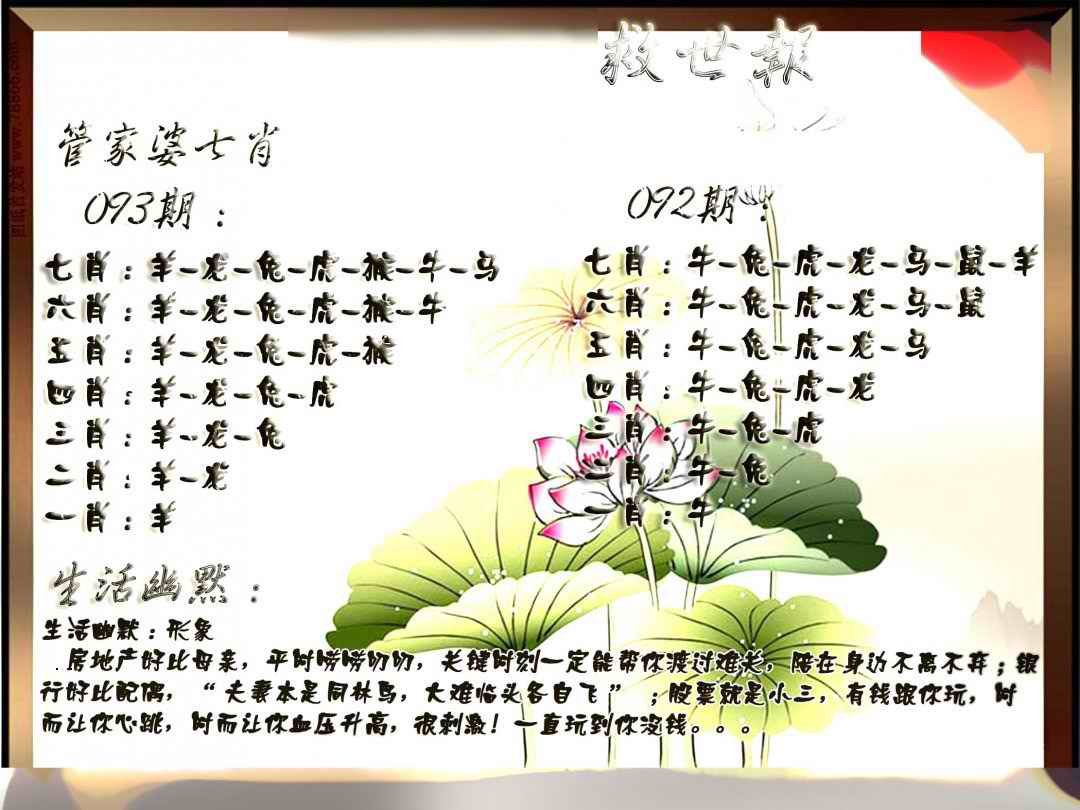 救世報
管家婆七肖
093期：
七肖：羊-龙-兔-虎-猴-牛-马
六肖：羊-龙-兔-虎-猴-牛
五肖：羊-龙-兔-虎-猴
四肖：羊-龙-兔-虎
三肖：羊-龙-兔
二肖：羊-龙
一肖：羊
092期：
七肖：牛-兔-虎-龙-马-鼠-羊
六肖：牛-兔-虎-龙-马-鼠
五肖：牛-兔-虎-龙-马
四肖：牛-兔-虎-龙
三肖：牛-兔-虎
二肖：牛-兔
一肖：牛
生活幽默：
生活幽默：形象
．房地产好比母亲，平时唠唠叨叨，关键时刻一定能帮你渡过难关，陪在身边不离不弃；银
行好比配偶，“夫妻本是同林鸟，大难临头各自飞”；股票就是小三，有钱跟你玩，时
而让你心跳，时而让你血压升高，很刺激！一直玩到你没钱。。。